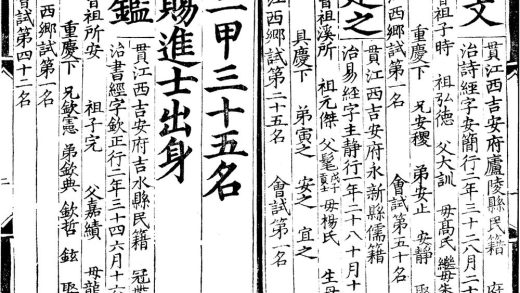 文
貫江西吉安府廬陵縣民籍 府
治詩經字安簡行二年三十八八月二十
曾祖子時 祖弘德 父大訓 母高氏 繼母朱
重慶下 兄安稷 弟安止 安靜 娶
江西鄉試第一名 會試第五十名
定之
貫江西吉安府永新縣儒籍
治易經字主靜行一年二十八十月十
曾祖溪所 祖元傑 父髦 母楊氏 生母
具慶下 弟寅之 安之 宜之
江西鄉試第二十五名 會試第一名
二甲三十五名
賜進士出身
鑑
貫江西吉安府吉水縣民籍 冠帶
治書經字欽正行二年三十四六月十六
曾祖所安 祖子完 父嘉績 母龍
重慶下 兄欽憲 弟欽典 欽哲 鉉 娶
江西鄉試第一名
會試第四十二名